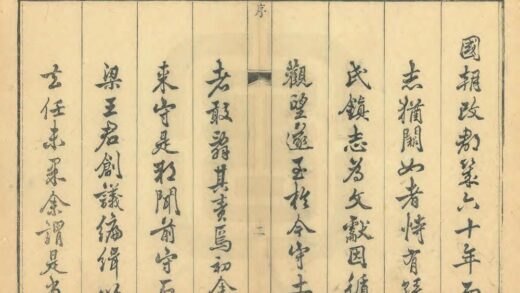 國朝改郡六十年而
志猶闕如者恃有
氏鎮志為文獻因循
觀望遂至於今守土
者敢辭其責焉初余
序
二
來守是郡聞前守
梁王君創議編緝以
去任未果余謂是